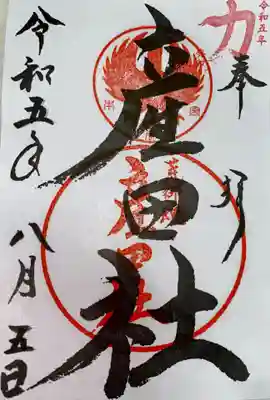 令和五年
力
奉拝
産田社
令和五年八月五日